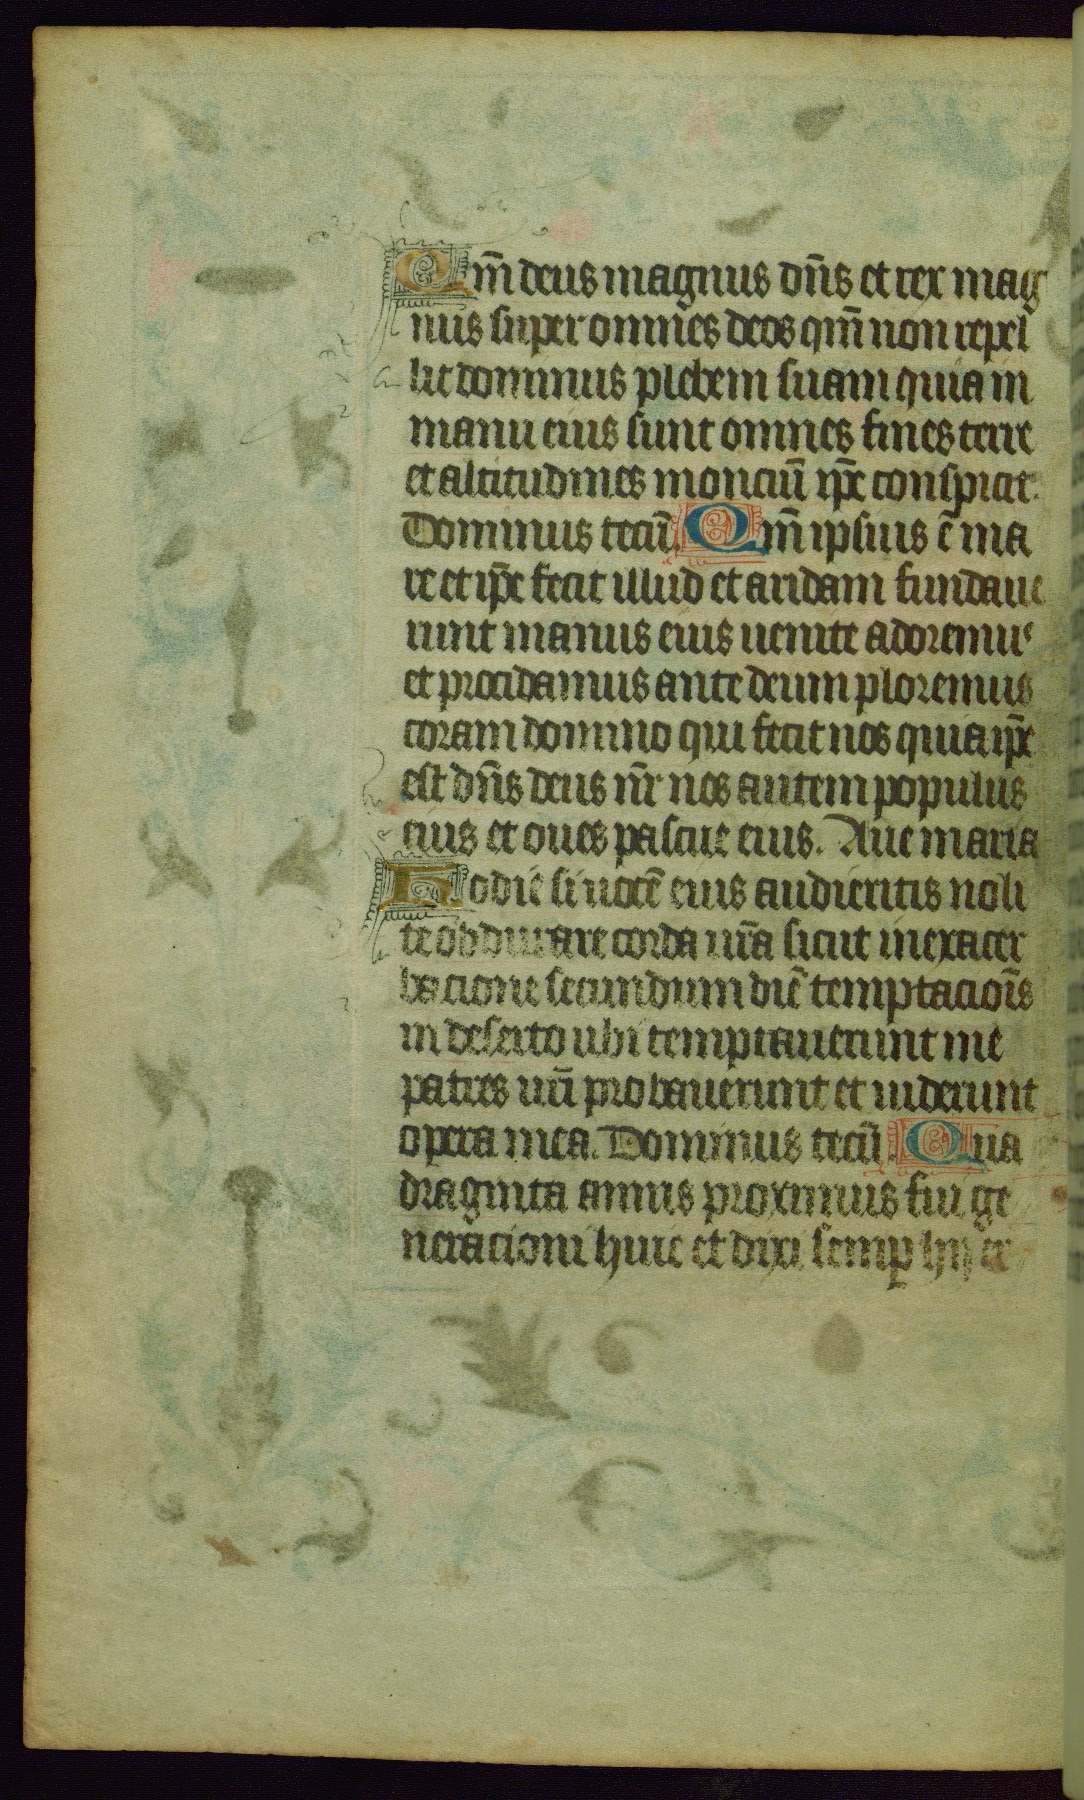 Qm̄ deus magnus dn̄s et rex mag
nus super omnes deos qm̄ non repel
lit dominus plebem suam quia in
manu eius sunt omnes fines terre
et altitudines monciū ip̄e conspicit.
Dominus tecū. Qm̄ ipsius ē ma
re et ip̄e fecit illud et aridam fundaue
runt manus eius uenite adoremus
et procidamus ante deum ploremus
coram domino qui fecit nos quia ip̄e
est dn̄s deus nr̄ nos autem populus
eius et oues pascue eius. Aue maria
Hodie si uocē eius audieritis noli
te obdurare corda ur̄a sicut in exacer
bacione secundum diē temptacioīs
in deserto ubi temptauerunt me
patres ur̄i probauerunt et uiderunt
opera mea. Dominus tecū. Qua
draginta annis proximus fui ge
neracioni huic et dixi semp hij er